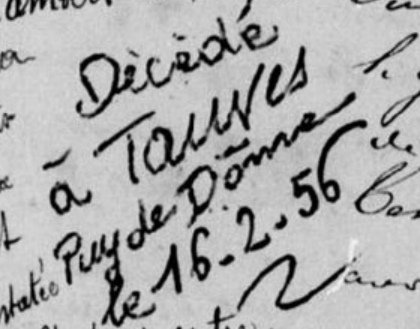 Décédé
à Tauves
Puy de Dôme
le 16-2-56